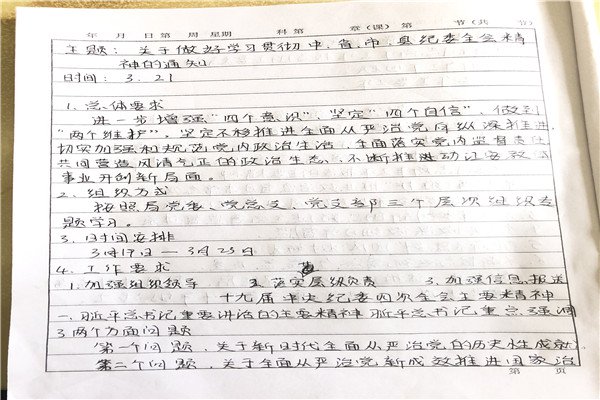 年 月 日 第 周 星期 科 第 章(课) 第 节(共 节)
主题：关于做好学习贯彻中、省、市、县纪委全会精
神的通知
时间：3.21
1. 总体要求
进一步增强“四个意识”、坚定“四个自信”、做到
“两个维护”。坚定不移推进全面从严治党向纵深推进
切实加强和规范党内政治生活、全面落实党内监督责任
共同营造风清气正的政治生态、不断推进动江安教
事业开创新局面。
2. 组织方式
按照局党委、党总支、党支部三个层次组织专
题学习。
3. 时间安排
3月19日—3月25日
4. 工作要求
1. 加强组织领导 2. 落实层级负责 3. 加强信息报送
十九届中央纪委四次全会主要精神
一、习近平总书记重要讲话的主要精神 习近平总书记重点强调
3两个方面问题
第一个问题、关于新时代全面从严治党的历史性成就
第二个问题、关于全面从严治党新成效推进国家治
第 页